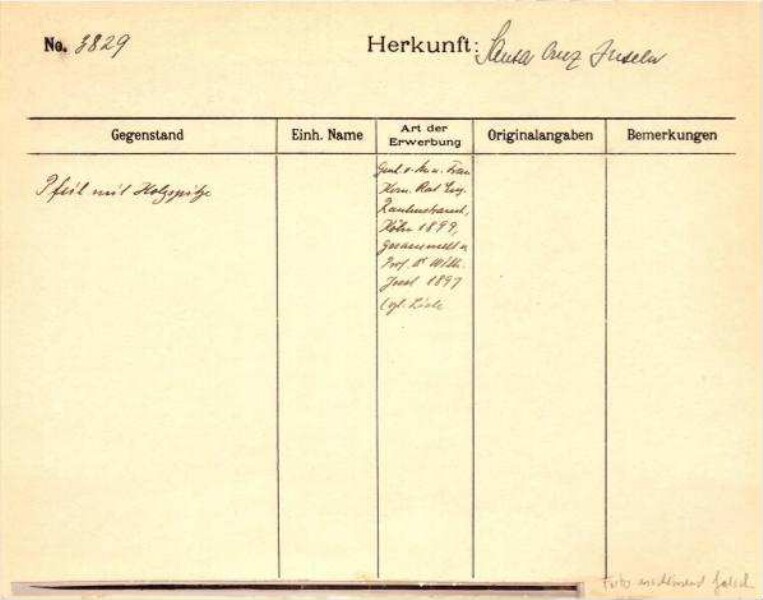 No. 3829
Herkunft: Santa Cruz Inseln
Gegenstand
Einh. Name
Art der
Erwerbung
Originalangaben
Bemerkungen
Pfeil mit Holzspitze
Gesch. v. Frau
Kom. Rat Eug.
Rautenstrauch,
Köln 1899,
gesammelt v.
Prof. Dr Wilh.
Joest 1897
(vgl. Liste
falsch